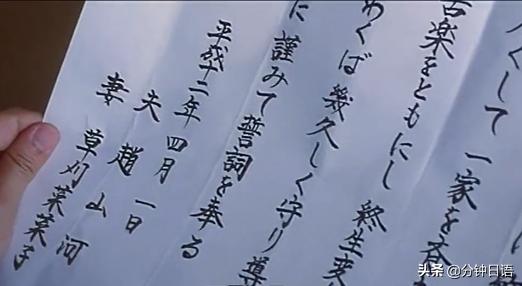 くして 一家を
楽をともにし 終生変
くば 幾久しく守り導
に 謹みて誓詞を奉る
平成十二年四月一日
夫 趙山河
妻 草刈菜菜子
头条 @分钟日语